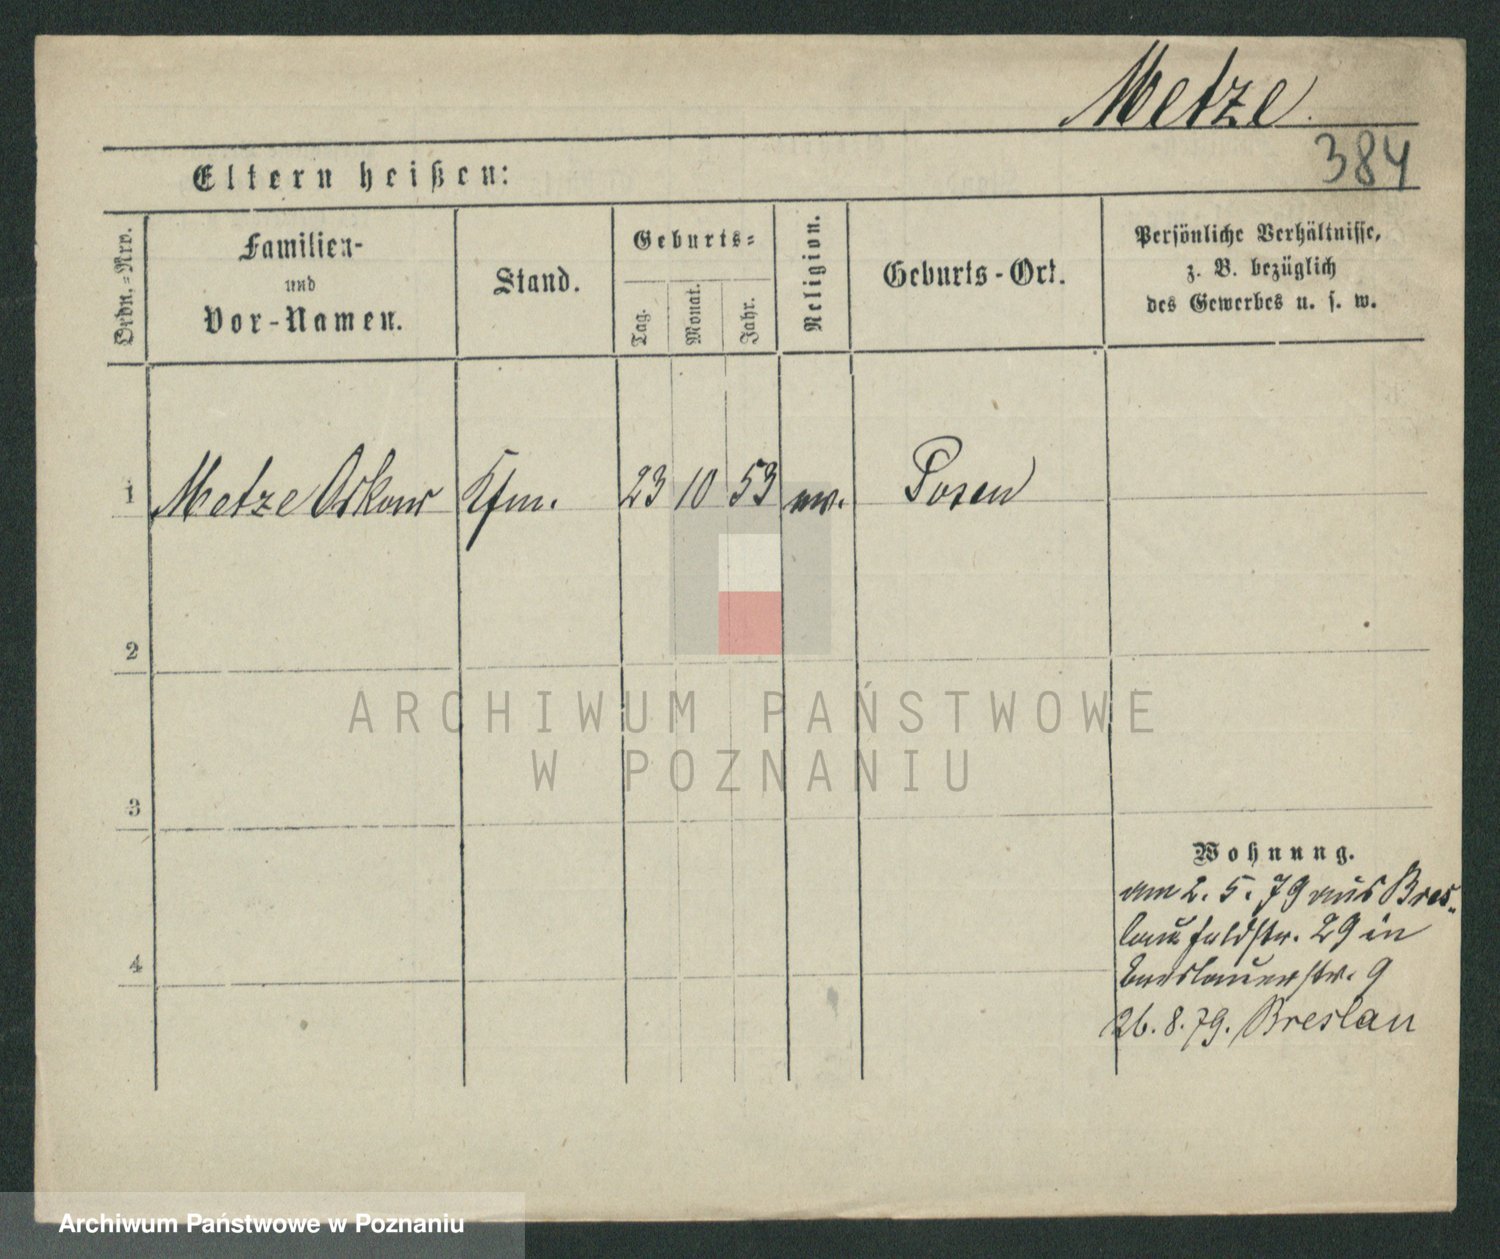 Metze
384
Eltern heißen:
Ordn.=Nrv.
Familien-
und
Vor-Namen.
Stand.
Geburts=
Tag.
Monat.
Jahr.
Religion.
Geburts-Ort.
Persönliche Verhältnisse,
z. B. bezüglich
des Gewerbes u. s. w.
1
Metze Oskar
Kfm.
23
10
53
ev.
Posen
2
ARCHIWUM PAŃSTWOWE
W POZNANIU
3
Wohnung.
am 2. 5. 79 aus Bres-
lau Feldstr. 29 in
4
Breslauerstr. 9
26. 8. 79. Breslau
Archiwum Państwowe w Poznaniu